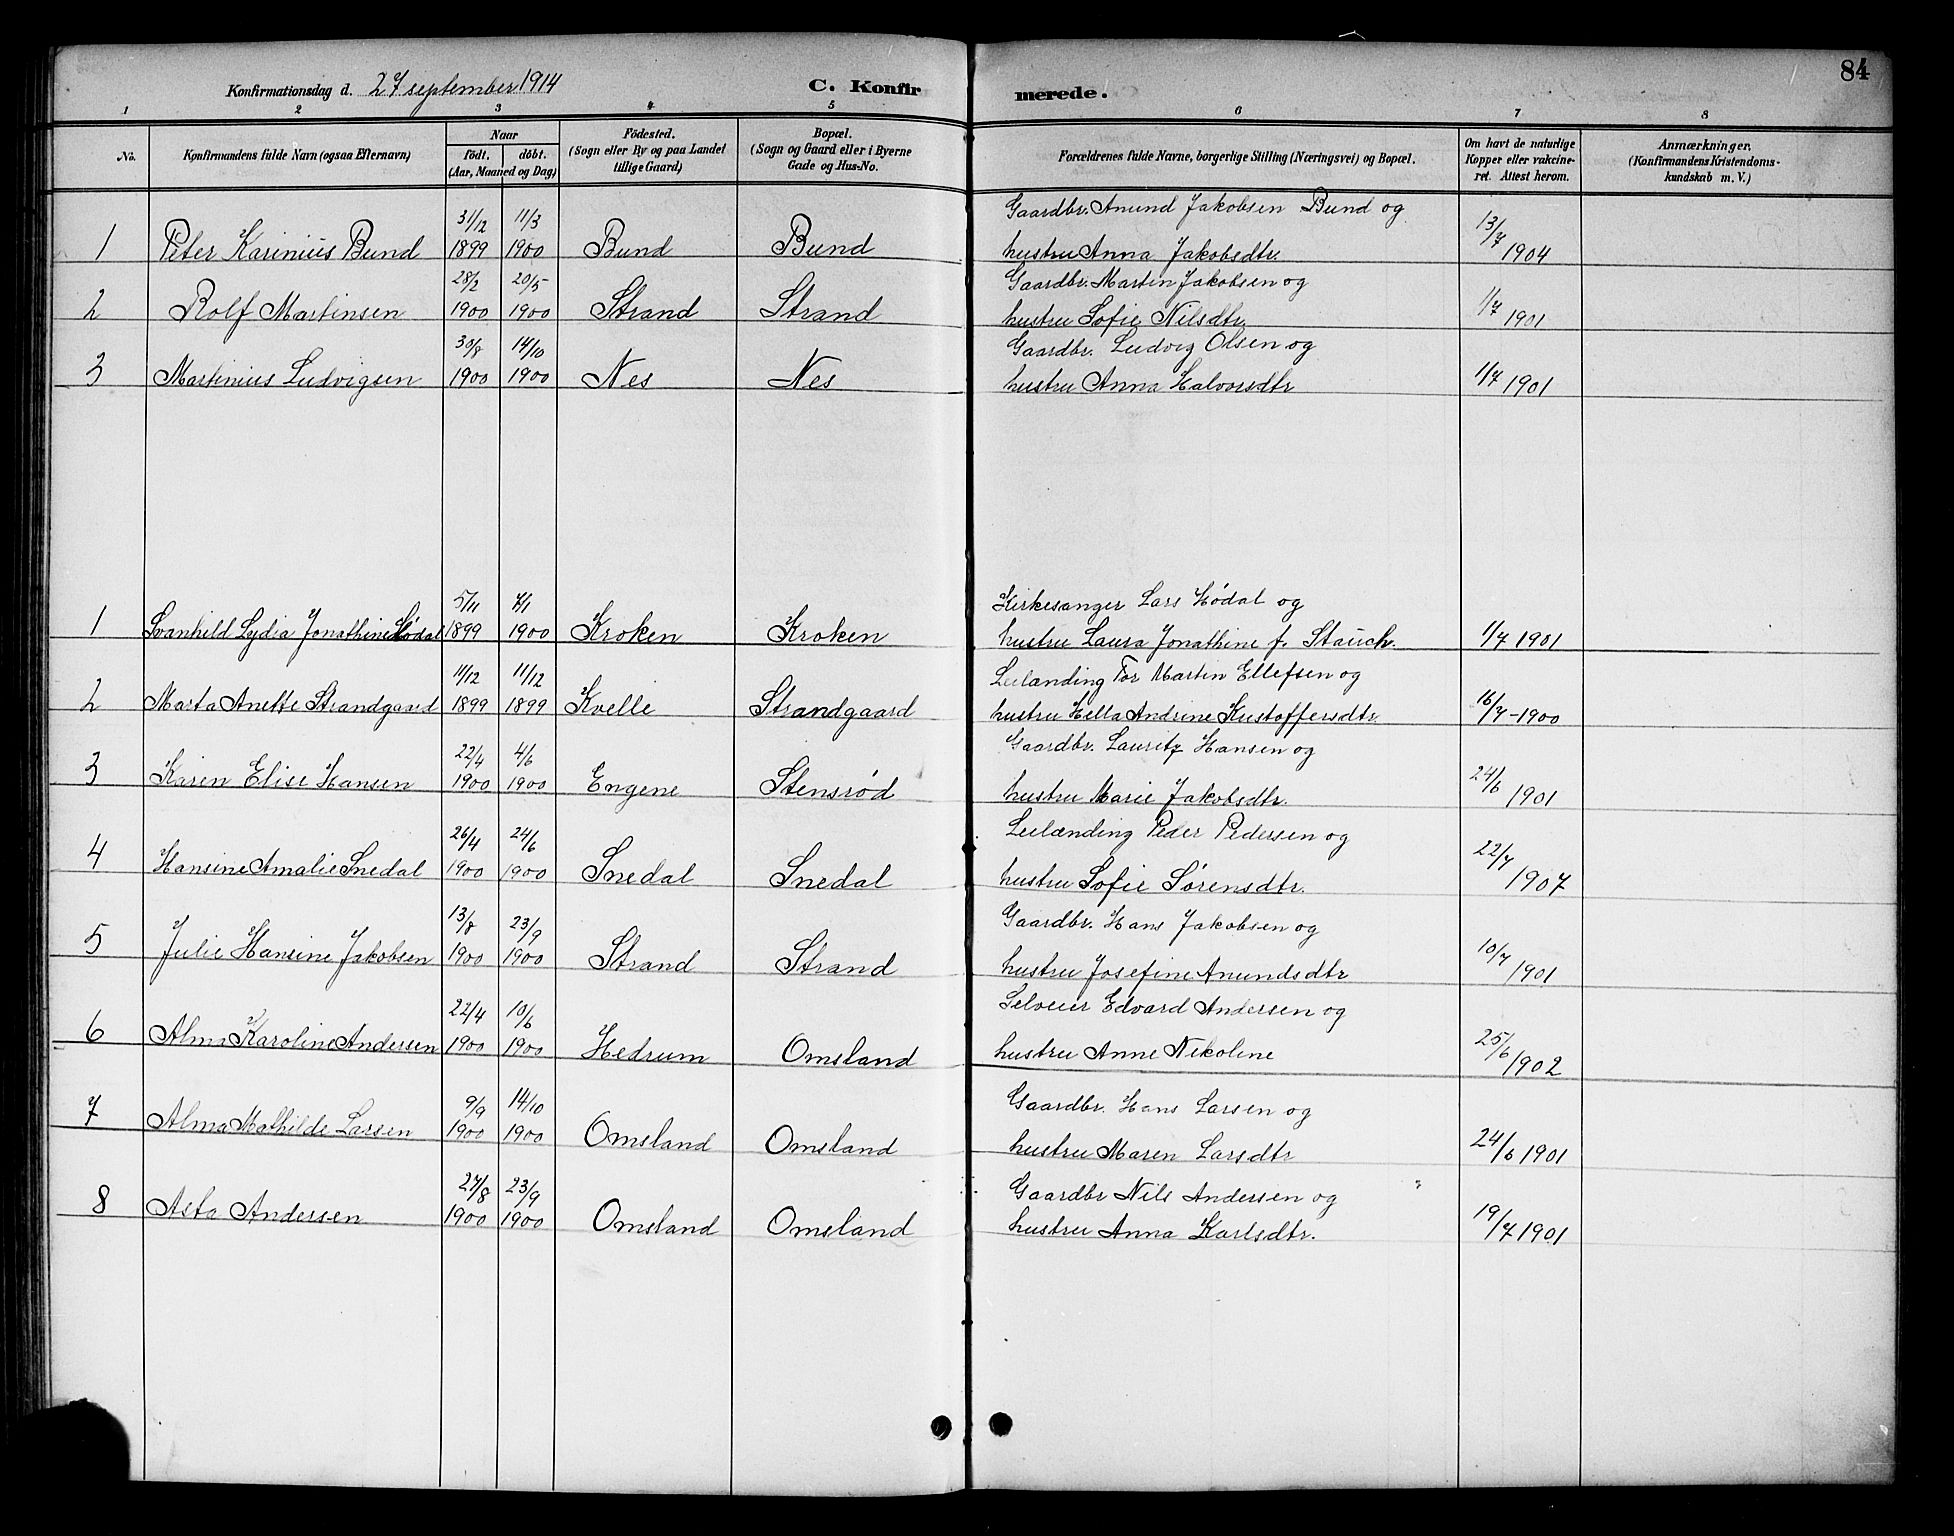 84
Konfirmationsdag d. 27 september 1914 C. Konfirmerede.
1 2 3 4 5 6 7 8
No. Konfirmandens fulde Navn (ogsaa Efternavn) Naar födt. döbt. (Aar, Maaned og Dag) Födested. (Sogn eller By og paa Landet tillige Gaard) Bopæl. (Sogn og Gaard eller i Byerne Gade og Hus-No. Forældrenes fulde Navne, borgerlige Stilling (Næringsvei) og Bopæl. Om havt de naturlige Kopper eller vakcineret. Attest herom. Anmærkninger. (Konfirmandens Kristendomskundskab m. V.)
31/12 11/3 Gaardbr. Anund Jakobsen Bund og 13/7
1 Peter Karinius Bund 1899 1900 Bund Bund hustru Anna Jakobsdtr. 1904
28/2 20/5 Gaardbr. Martin Jakobsen og 1/7
2 Rolf Martinsen 1900 1900 Strand Strand hustru Sofie Nilsdtr. 1901
30/8 14/10 Gaardbr. Ludvig Olsen og
3 Martinius Ludvigsen 1900 1900 Nes Nes hustru Anna Halvorsdtr 1/7 1901
5/11 7/1 Kirkesanger Lars Hødal og
1 Svanhild Lydia Jonathine Hødal 1899 1900 Kroken Kroken hustru Laura Jonathine f. Stauch. 1/7 1901
11/12 11/12 Leilænding Tor Martin Ellefsen og
2 Marta Anette Strandgaard 1899 1899 Kvelle Strandgaard hustru Hella Andrine Kristoffersdtr. 16/7-1900
22/4 4/6 Gaardbr. Lauritz Hansen og
3 Karen Elise Hansen 1900 1900 Engene Stensrød hustru Marie Jakobsdtr. 24/6 1901
26/4 24/6 Leilænding Peder Pedersen og
4 Hansine Amalie Snedal 1900 1900 Snedal Snedal hustru Sofie Sørensdtr. 22/7 1907
13/8 23/9 Gaardbr. Hans Jakobsen og
5 Julie Hansine Jakobsen 1900 1900 Strand Strand hustru Josefine Anundsdtr 10/7 1901
22/4 10/6 Selveier Edvard Andersen og
6 Alma Karoline Andersen 1900 1900 Hedrum Omsland hustru Anne Nikoline 25/6 1902
9/9 14/10 Gaardbr. Hans Larsen og
7 Alma Mathilde Larsen 1900 1900 Omsland Omsland hustru Maren Larsdtr 24/6 1901
27/8 23/9 Gaardbr Nils Andersen og
8 Asta Andersen 1900 1900 Omsland Omsland hustru Anna Karlsdtr. 19/7 1901